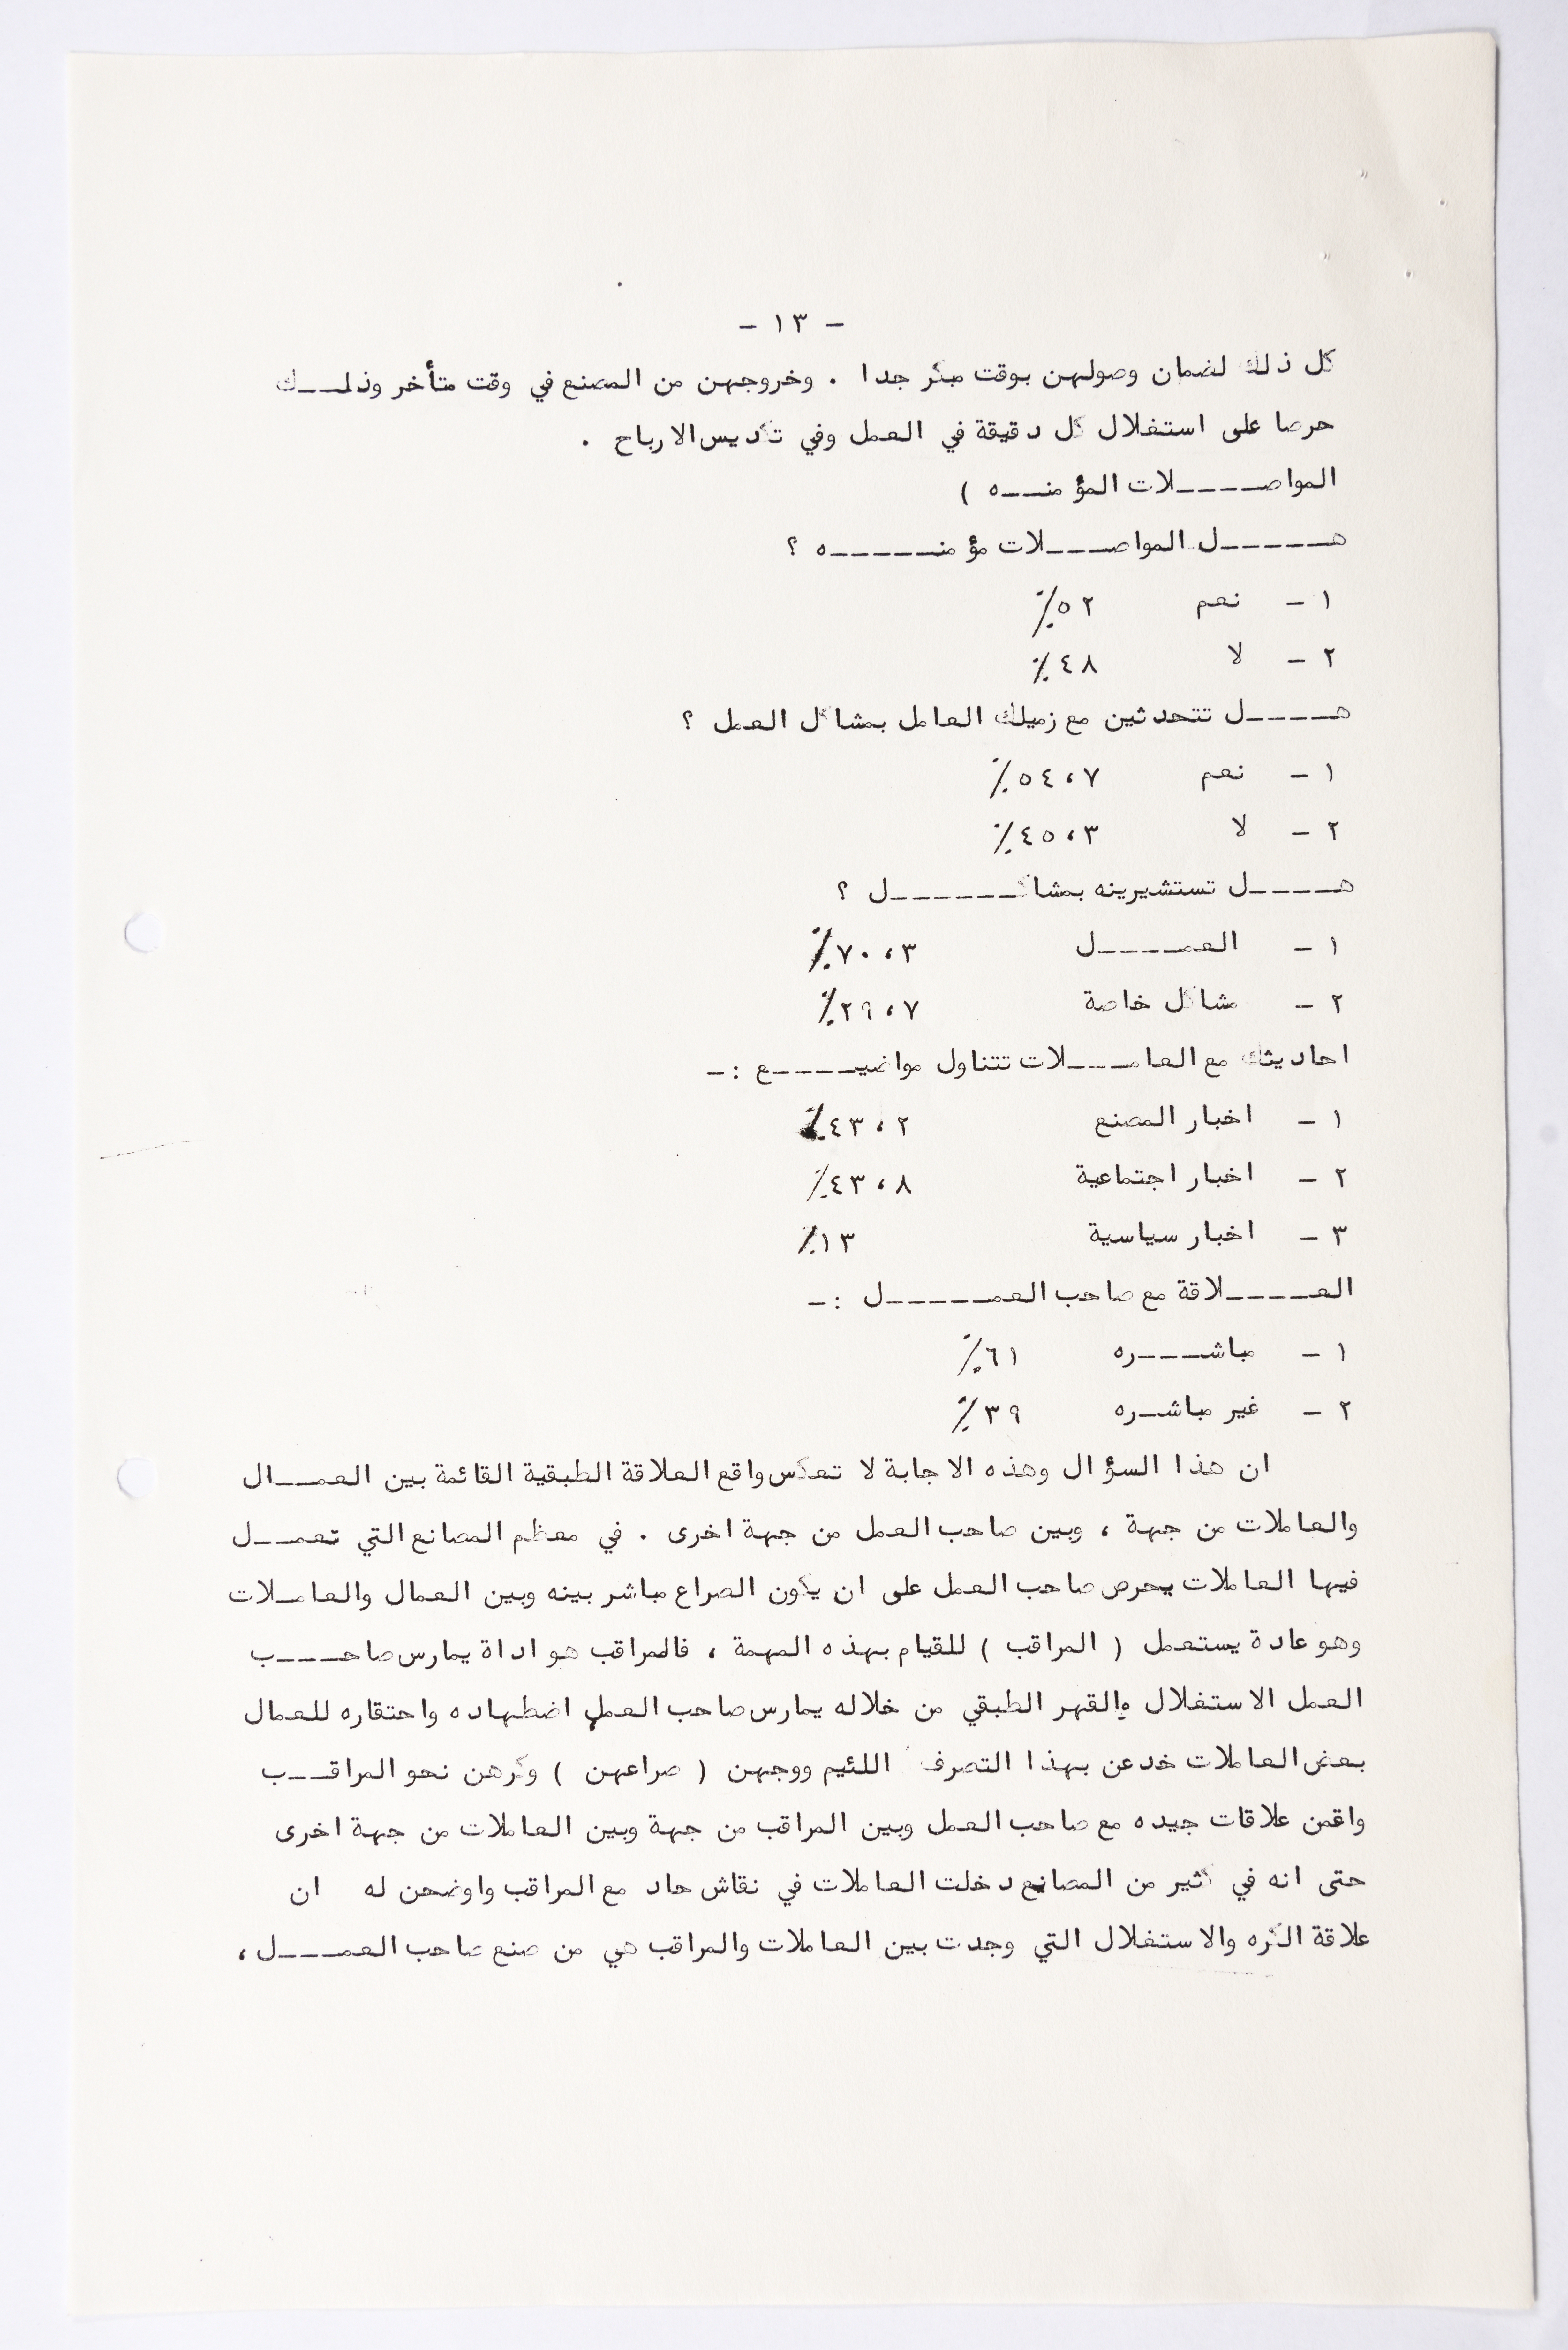 - ١٣ -
كل ذلك لضمان وصولهن بوقت مبكر جدا . وخروجهن من المصنع في وقت متأخر وذلـــك
حرصا على استغلال كل دقيقة في العمل وفي تكديس الارباح .
المواصـــــلات المؤمنـــه )
هــــــل المواصــــلات مؤمنــــــه ؟
١ - نعم ٥٢٪
٢ - لا ٤٨٪
هـــــل تتحدثين مع زميلك العامل بمشاكل العمل ؟
١ - نعم ٥٤،٧٪
٢ - لا ٤٥،٣٪
هـــــل تستشيرينه بمشاكـــــــل ؟
١ - العمـــــل ٧٠،٣٪
٢ - مشاكل خاصة ٢٩،٧٪
احاديثك مع العامـــــلات تتناول مواضيـــــع :-
١ - اخبار المصنع ٤٣،٢٪
٢ - اخبار اجتماعية ٤٣،٨٪
٣ - اخبار سياسية ١٣٪
العـــــلاقة مع صاحب العمــــــل :-
١ - مباشــــره ٦١٪
٢ - غير مباشــره ٣٩٪
ان هذا السؤال وهذه الاجابة لا تعكس واقع العلاقة الطبقية القائمة بين العمــــال
والعاملات من جهة ، وبين صاحب العمل من جهة اخرى . في معظم المصانع التي تعمـــل
فيها العاملات يحرص صاحب العمل على ان يكون الصراع مباشر بينه وبين العمال والعامـلات
وهو عادة يستعمل ( المراقب ) للقيام بهذه المهمة ، فالمراقب هو اداة يمارس صاحــــب
العمل الاستغلال والقهر الطبقي من خلاله يمارس صاحب العمل اضطهاده واحتقاره للعمال
بعض العاملات خدعن بهذا التصرف اللئيم ووجهن ( صراعهن ) وكرهن نحو المراقـــب
واقمن علاقات جيده مع صاحب العمل وبين المراقب من جهة وبين العاملات من جهة اخرى
حتى انه في كثير من المصانع دخلت العاملات في نقاش حاد مع المراقب واوضحن له ان
علاقة الكره والاستغلال التي وجدت بين العاملات والمراقب هي من صنع صاحب العمـــل ،